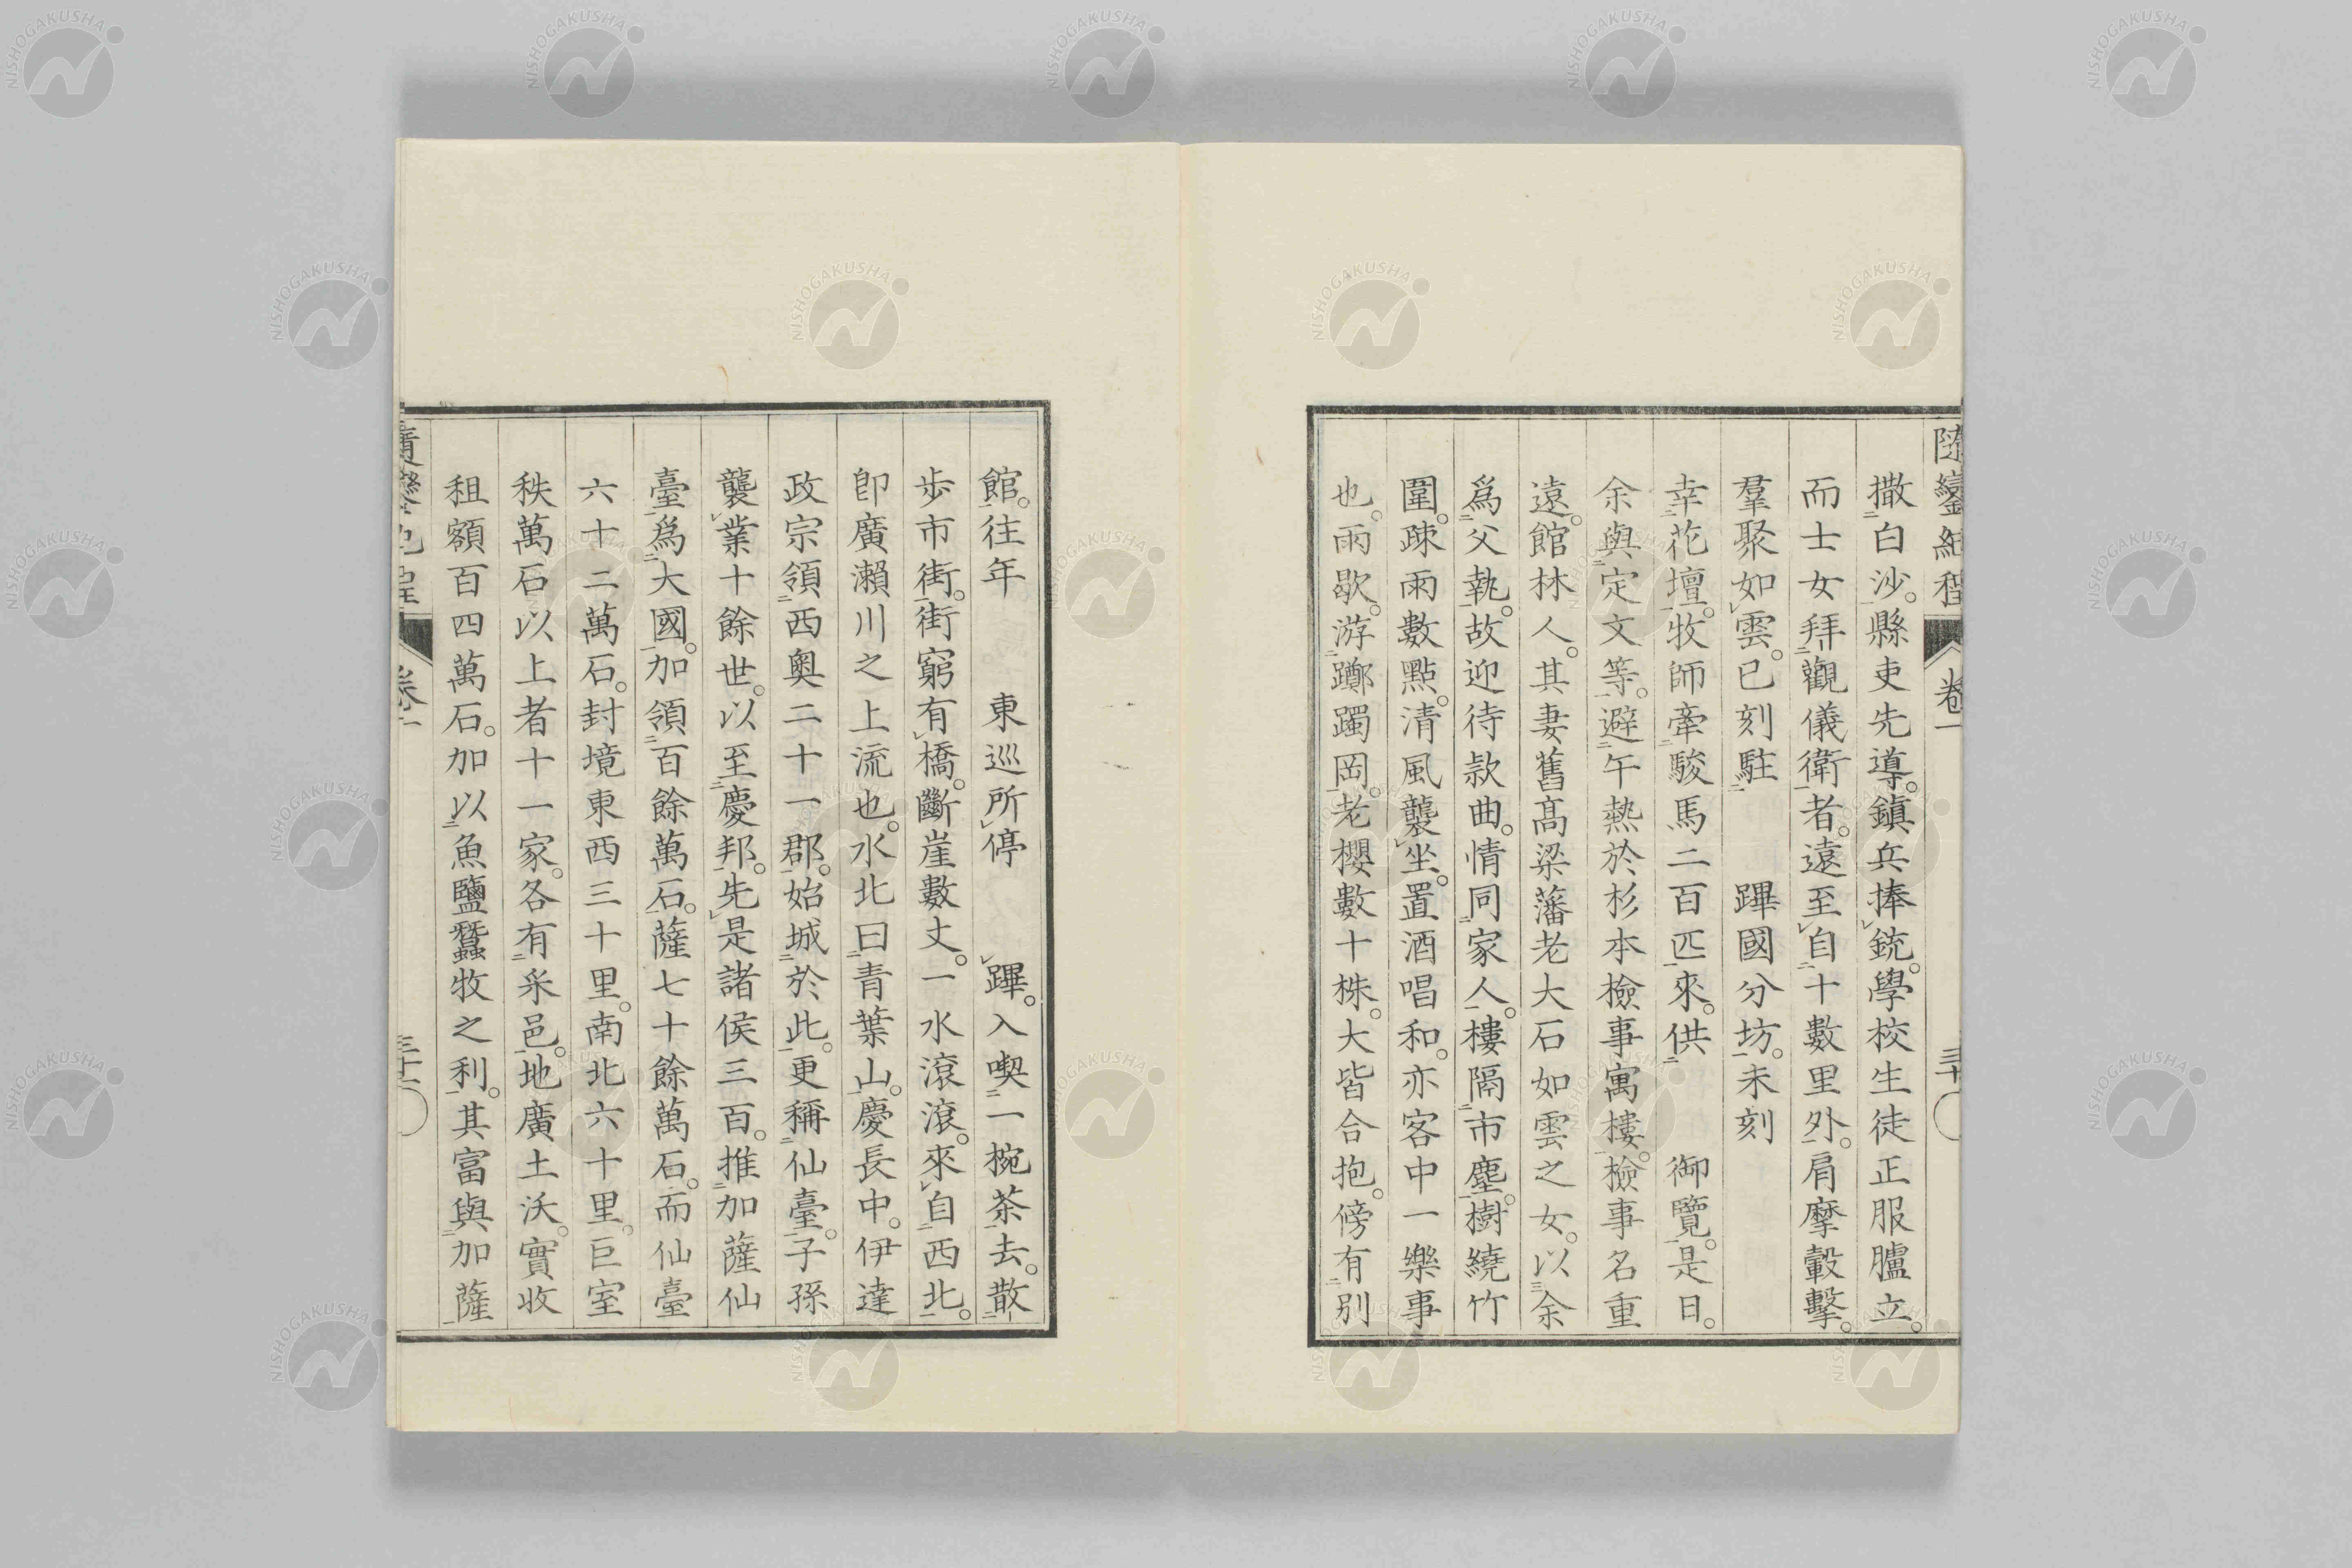 陪鑾紀程 卷一 三十
撒白沙。縣吏先導。鎮兵捧銃。學校生徒正服臚立。
而士女拜觀儀衛者。遠至自十數里外。肩摩轂擊。
羣聚如雲。已刻駐 蹕國分坊。未刻
幸花壇。牧師牽駿馬二百匹來。供 御覽。是日。
余與定文等。避午熱於杉本檢事寓樓。檢事名重
遠。館林人。其妻舊高梁藩老大石如雲之女。以余
爲父執。故迎待款曲。情同家人。樓隔市塵。樹繞竹
圍。疎雨數點。清風襲坐。置酒唱和。亦客中一樂事
也。雨歇。游躑躅岡。老櫻數十株。大皆合抱。傍有別
館。往年 東巡所停 蹕。入喫一椀茶去。散
步市街。街窮有橋。斷崖數丈。一水滾滾。來自西北。
卽廣瀨川之上流也。水北曰青葉山。慶長中。伊達
政宗領西奧二十一郡。始城於此。更稱仙臺。子孫
襲業十餘世。以至慶邦。先是諸侯三百。推加薩仙
臺爲大國。加領百餘萬石。薩七十餘萬石。而仙臺
六十二萬石。封境東西三十里。南北六十里。巨室
秩萬石以上者十一家。各有采邑。地廣土沃。實收
租額百四萬石。加以魚鹽蠶牧之利。其富與加薩
NISHOGAKUSHA